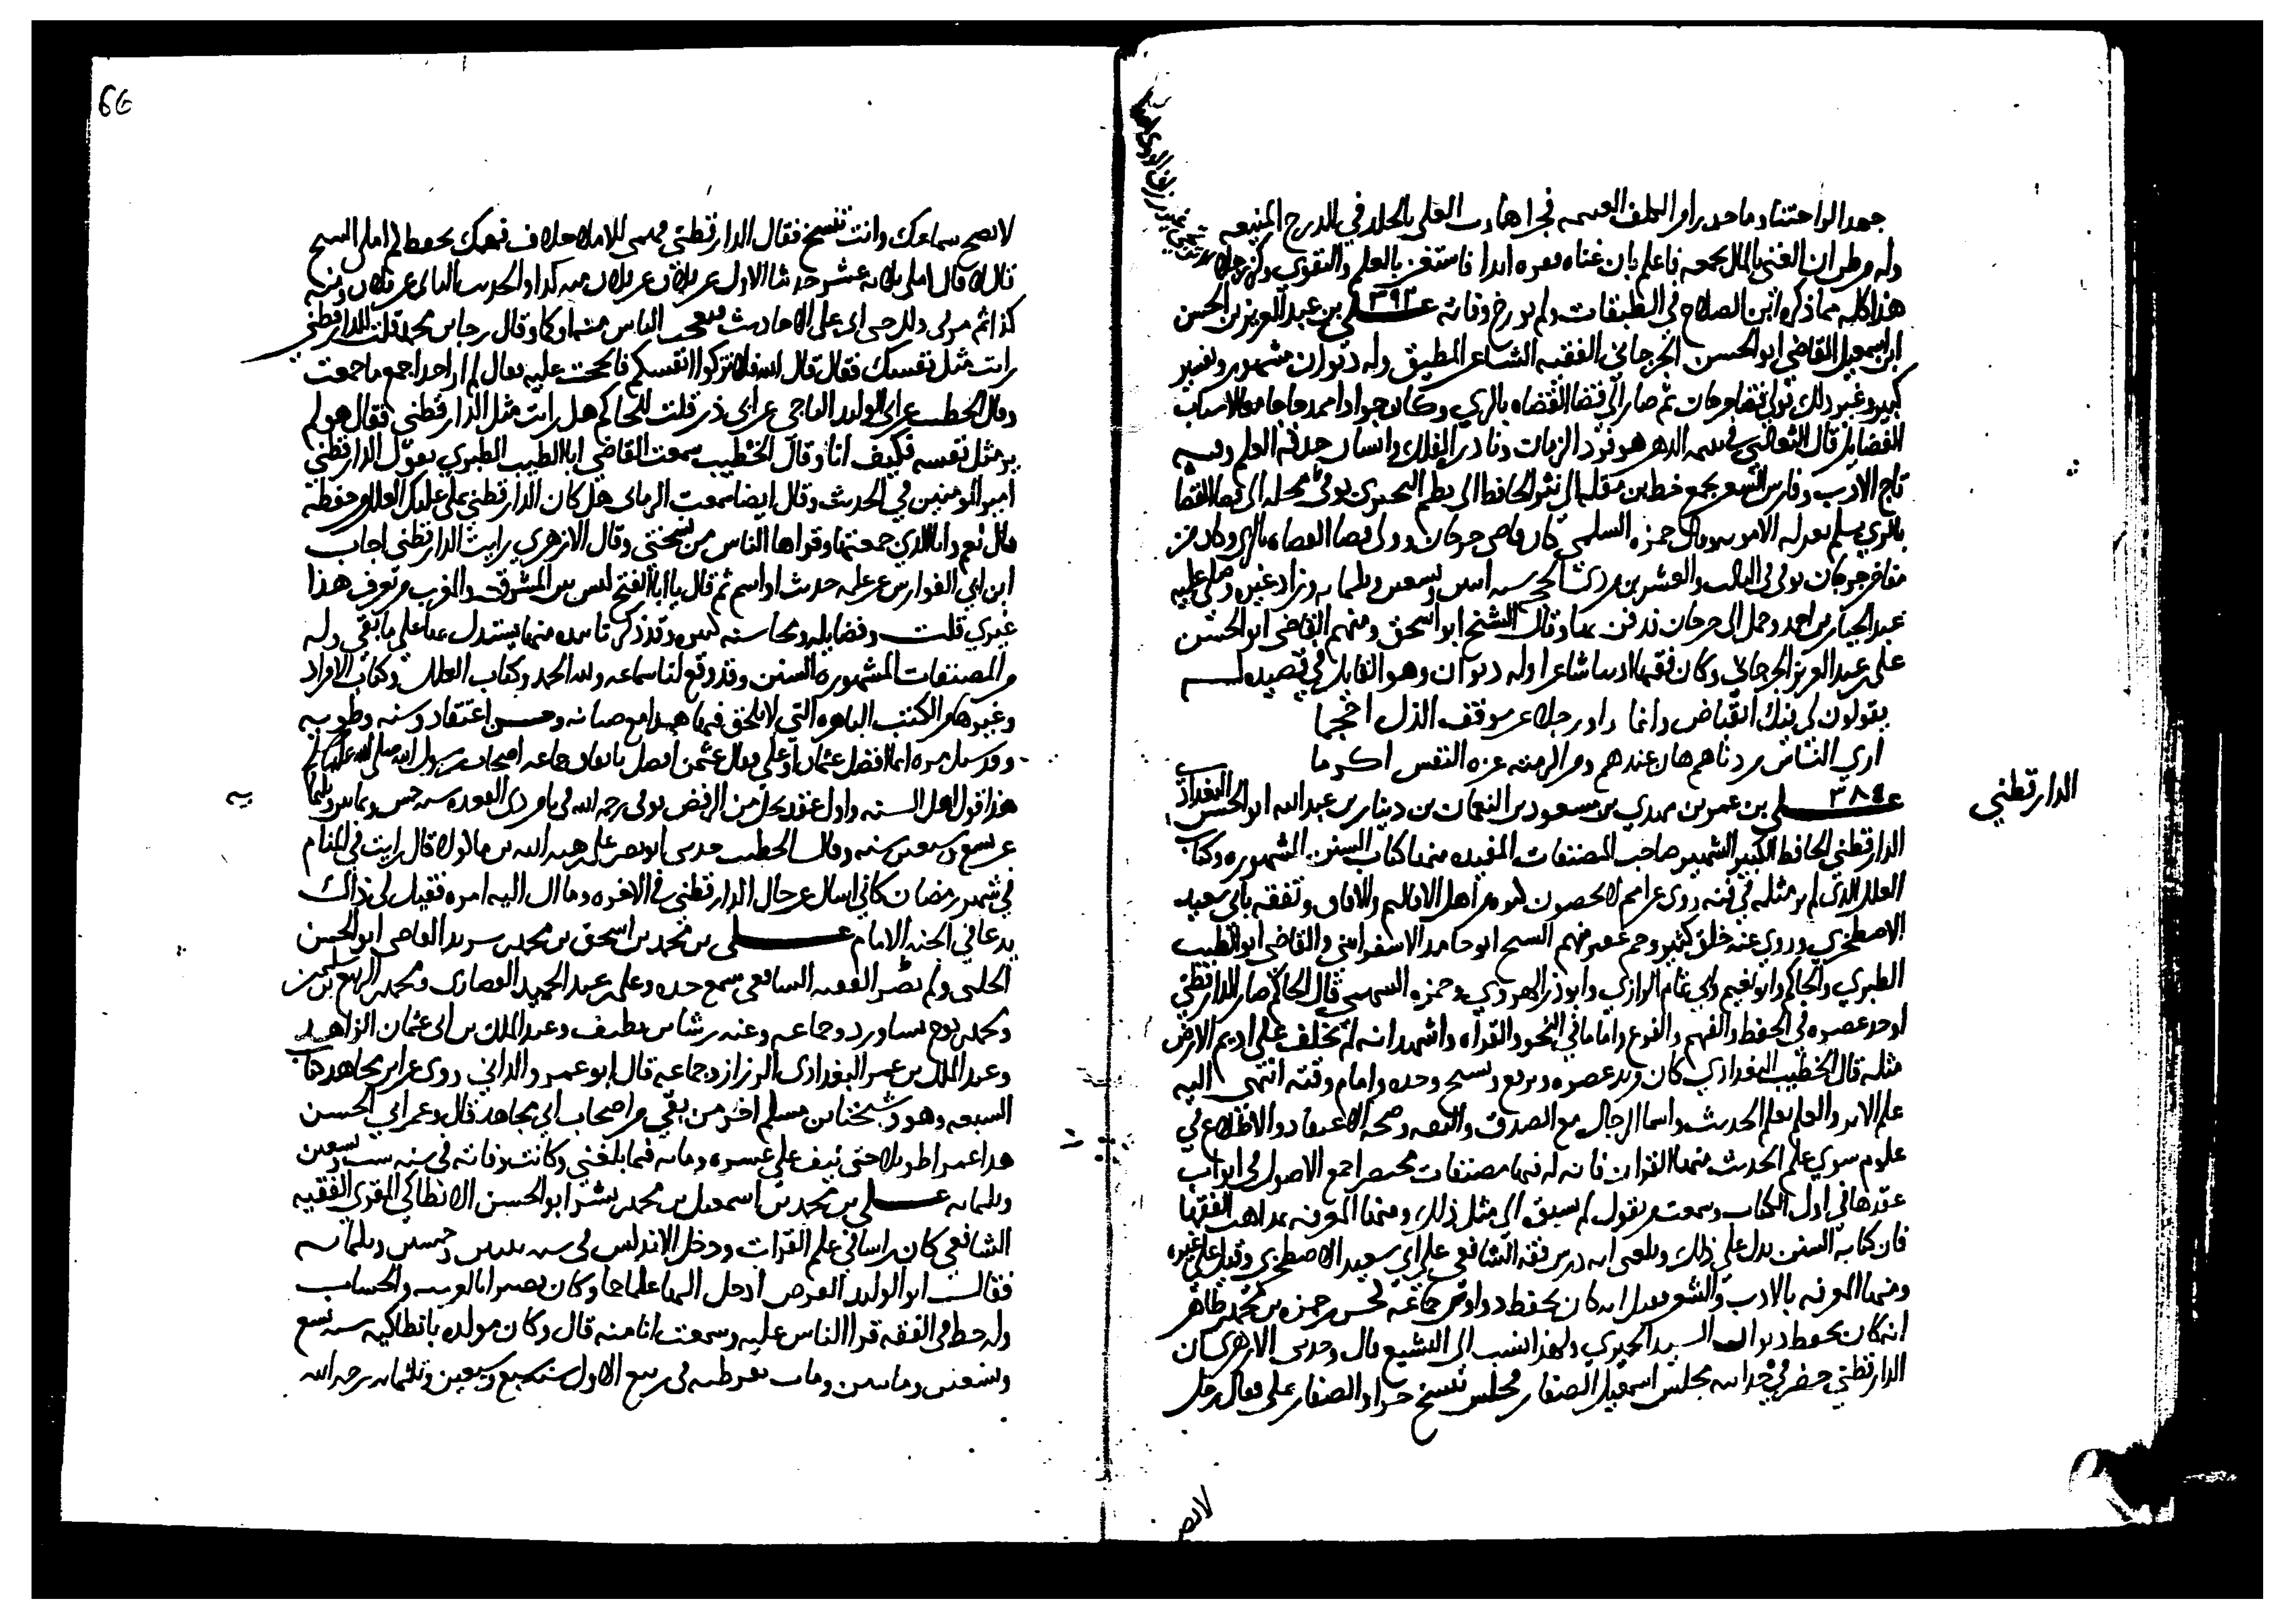 وله من ظن ان الغنى بالمال يجمعه فاعلم بان غناه فقره ابدا فاستغن بالعلم والتقوى وكن رجلا
هذا كله مما ذكره ابن الصلاح في الطبقات ولم يورخ وفاته ٣٩٢ علي بن عبد العزيز بن الحسن
ابن اسمعيل القاضي ابو الحسن الجرجاني الفقيه الشاعر المطبق وله ديوان مشهور وتفسير
كبير وغير ذلك تولى قضا جرجان ثم صار الى قضا القضاه بالري وكان جوادا
الفضايل قال الثعالبي في يتيمه الدهر هو فرد الزمان ونادره الفلك وانسان حدقه العلم وقبه
تاج الادب وفارس الشعر يجمع خط ابن مقله الى نثر الجاحظ الى نظم البحتري
مفاخر جرجان توفي في الثالث والعشرين من ذي الحجه سنه اثنين وتسعين وثلثمايه وزاد غيره وصلى عليه
عبد الجبار بن احمد وحمل الى جرجان فدفن بها وقال الشيخ ابو اسحق ومنهم القاضي ابو الحسن
علي بن عبد العزيز الجرجاني وكان فقيها اديبا شاعرا وله ديوان وهو القايل في قصيده له
يقولون لي فيك انقباض وانما راوا رجلا عن موقف الذل احجما
ارى الناس من داناهم هان عندهم ومن اكرمته عزه النفس اكرما
الدارقطني
٣٨٤ علي بن عمر بن مهدي بن مسعود بن النعمان بن دينار بن عبد الله ابو الحسن البغدادي
الدارقطني الحافظ الكبير الشهير صاحب المصنفات المفيده منها كتاب السنن المشهوره وكتاب
العلل الذي لم ير مثله في فنه روى عن امم لا يحصون كثره من اهل الاقاليم والافاق وتفقه بابي سعيد
الاصطخري وروى عنه خلق كثير وجم غفير منهم الشيخ ابو حامد الاسفرايني والقاضي ابو الطيب
الطبري والحاكم وابو نعيم وابي تمام الرازي وابو ذر الهروي وحمزه السهمي قال الحاكم صار الدارقطني
اوحد عصره في الحفظ والفهم والورع واماما في النحو والقراه واشهد انه لم يخلف على اديم الارض
مثله قال الخطيب البغدادي كان فريد عصره وقريع دهره ونسيج وحده وامام وقته انتهى اليه
علم الاثر والعلم بعلل الحديث واسما الرجال مع الصدق والثقه وصحه الاعتقاد والاطلاع في
علوم سوى علم الحديث منها القران فانه له فيها مصنفات مختصرا جمع الاصول في ابواب
عقدها في اول الكتاب وسمعت من يقول لم يسبق الى مثل ذلك ومنها المعرفه بمذاهب الفقها
فان كتابه السنن يدل على ذلك وبلغني انه درس فقه الشافعي على ابي سعيد الاصطخري وقيل على غيره
ومنها المعرفه بالادب والشعر فقيل انه كان يحفظ دواوين جماعه فحسن حمزه بن محمد بن طاهر
انه كان يحفظ ديوان السيد الحميري ولهذا نسب الى التشيع قال وحدثني الازهري ان
الدارقطني حضر في حداثته مجلس اسمعيل الصفار فجلس ينسخ جزا والصفار يملي فقال رجل
لا يصح
66
لا يصح سماعك وانت تنسخ فقال الدارقطني فهمي للاملا خلاف فهمك تحفظ كم املى الشيخ
قال لا قال املى ثمانيه عشر حديثا الاول عن فلان عن فلان ومتنه كذا والحديث الثاني عن فلان ومتنه
كذا ثم مر في ذلك حتى اتى على الاحاديث فتعجب الناس منه او كما قال وقال رجا بن محمد قلت للدارقطني
رايت مثل نفسك فقال قال الله فلا تزكوا انفسكم فالححت عليه فقال لم ار احدا جمع ما جمعت
وقال الخطيب عن ابي الوليد الباجي عن ابي ذر قلت للحاكم هل رايت مثل الدارقطني فقال هو لم
ير مثل نفسه فكيف انا وقال الخطيب سمعت القاضي ابا الطيب الطبري يقول الدارقطني
امير المومنين في الحديث وقال ايضا سمعت البرقاني هل كان الدارقطني يملي عليك العلل من حفظه
قال نعم وانا الذي جمعتها وقراها الناس من نسختي وقال الازهري رايت الدارقطني اجاب
ابن ابي الفوارس عن عله حديث او اسم ثم قال يا ابا الفتح ليس بين المشرق والمغرب من يعرف هذا
غيري قلت وفضايله ومحاسنه كثيره وقد ذكرنا نبذه منها يستدل بها على ما بقي وله
من المصنفات المشهوره السنن وقد وقع لنا سماعه ولله الحمد وكتاب العلل وكتاب الافراد
وغيرها من الكتب الباهره التي لا يلحق فيها هذا مع صيانه وحسن اعتقاد وسنه وطويه
وقد سيل مره ايما افضل عثمان او علي فقال عثمن افضل باتفاق جماعه اصحاب رسول الله صلى الله عليه وسلم
هذا قول اهل السنه واول عقد يحل من الرفض توفي رحمه الله في ثامن ذي القعده سنه خمس وثمانين وثلثمايه
عن تسع وسبعين سنه وقال الخطيب حدثني ابو نصر علي بن هبه الله بن ماكولا قال رايت في المنام
في شهر رمضان كاني اسال عن حال الدارقطني في الاخره وما ال اليه امره فقيل لي ذاك
يدعا في الجنه الامام علي بن محمد بن اسحق بن محمد بن يزيد القاضي ابو الحسن
الحلبي ولم بصر الفقيه الشافعي سمع جده وعلي بن عبد الحميد الغضايري ومحمد بن الربيع
ومحمد بن نوح الجنديسابوري وجماعه وعنه رشا بن نظيف وعبد الملك بن ابي عثمان الزاهد
وعبد الملك بن عمر البغدادي الرزاز وجماعه قال ابو عمرو الداني روى عن ابن مجاهد كتاب
السبعه وهو وشيخنا ابن مسلم اخر من بقي من اصحاب ابن مجاهد قال وعمر ابي الحسن
هذا عمرا طويلا حتى نيف على عشره ومايه فيما بلغني وكانت وفاته في سنه ست وتسعين
وثلثمايه علي بن محمد بن اسمعيل بن محمد بن بشر ابو الحسن الانطاكي المقري الفقيه
الشافعي كان راسا في علم القرات ودخل الاندلس في سنه ثنتين وخمسين وثلثمايه
فقال ابو الوليد الفرضي ادخل اليها علما جما وكان بصيرا بالعربيه والحساب
وله حظ في الفقه قرا الناس عليه وسمعت انا منه قال وكان مولده بانطاكيه سنه تسع
وتسعين ومايتين ومات بقرطبه في ربيع الاول سنه سبع وسبعين وثلثمايه رحمه الله